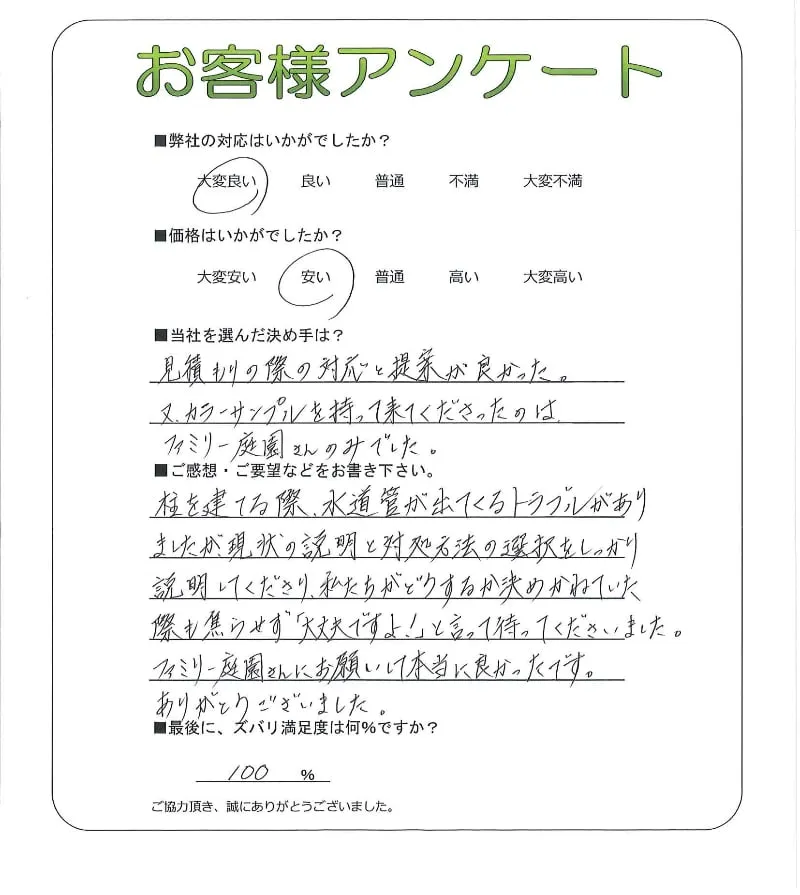 お客様アンケート
■弊社の対応はいかがでしたか？
大変良い 良い 普通 不満 大変不満
■価格はいかがでしたか？
大変安い 安い 普通 高い 大変高い
■当社を選んだ決め手は？
見積もりの際の対応と提案が良かった。
又、カラーサンプルを持って来てくださったのは、
ファミリー庭園さんのみでした。
■ご感想・ご要望などをお書き下さい。
柱を建てる際、水道管が出てくるトラブルがあり
ましたが、現状の説明と対処方法の選択をしっかり
説明してくださり、私たちがどうするか決めかねていた
際も焦らせず「大丈夫ですよ！」と言って待ってくださいました。
ファミリー庭園さんにお願いして本当に良かったです。
ありがとうございました。
■最後に、ズバリ満足度は何%ですか？
100 %
ご協力頂き、誠にありがとうございました。